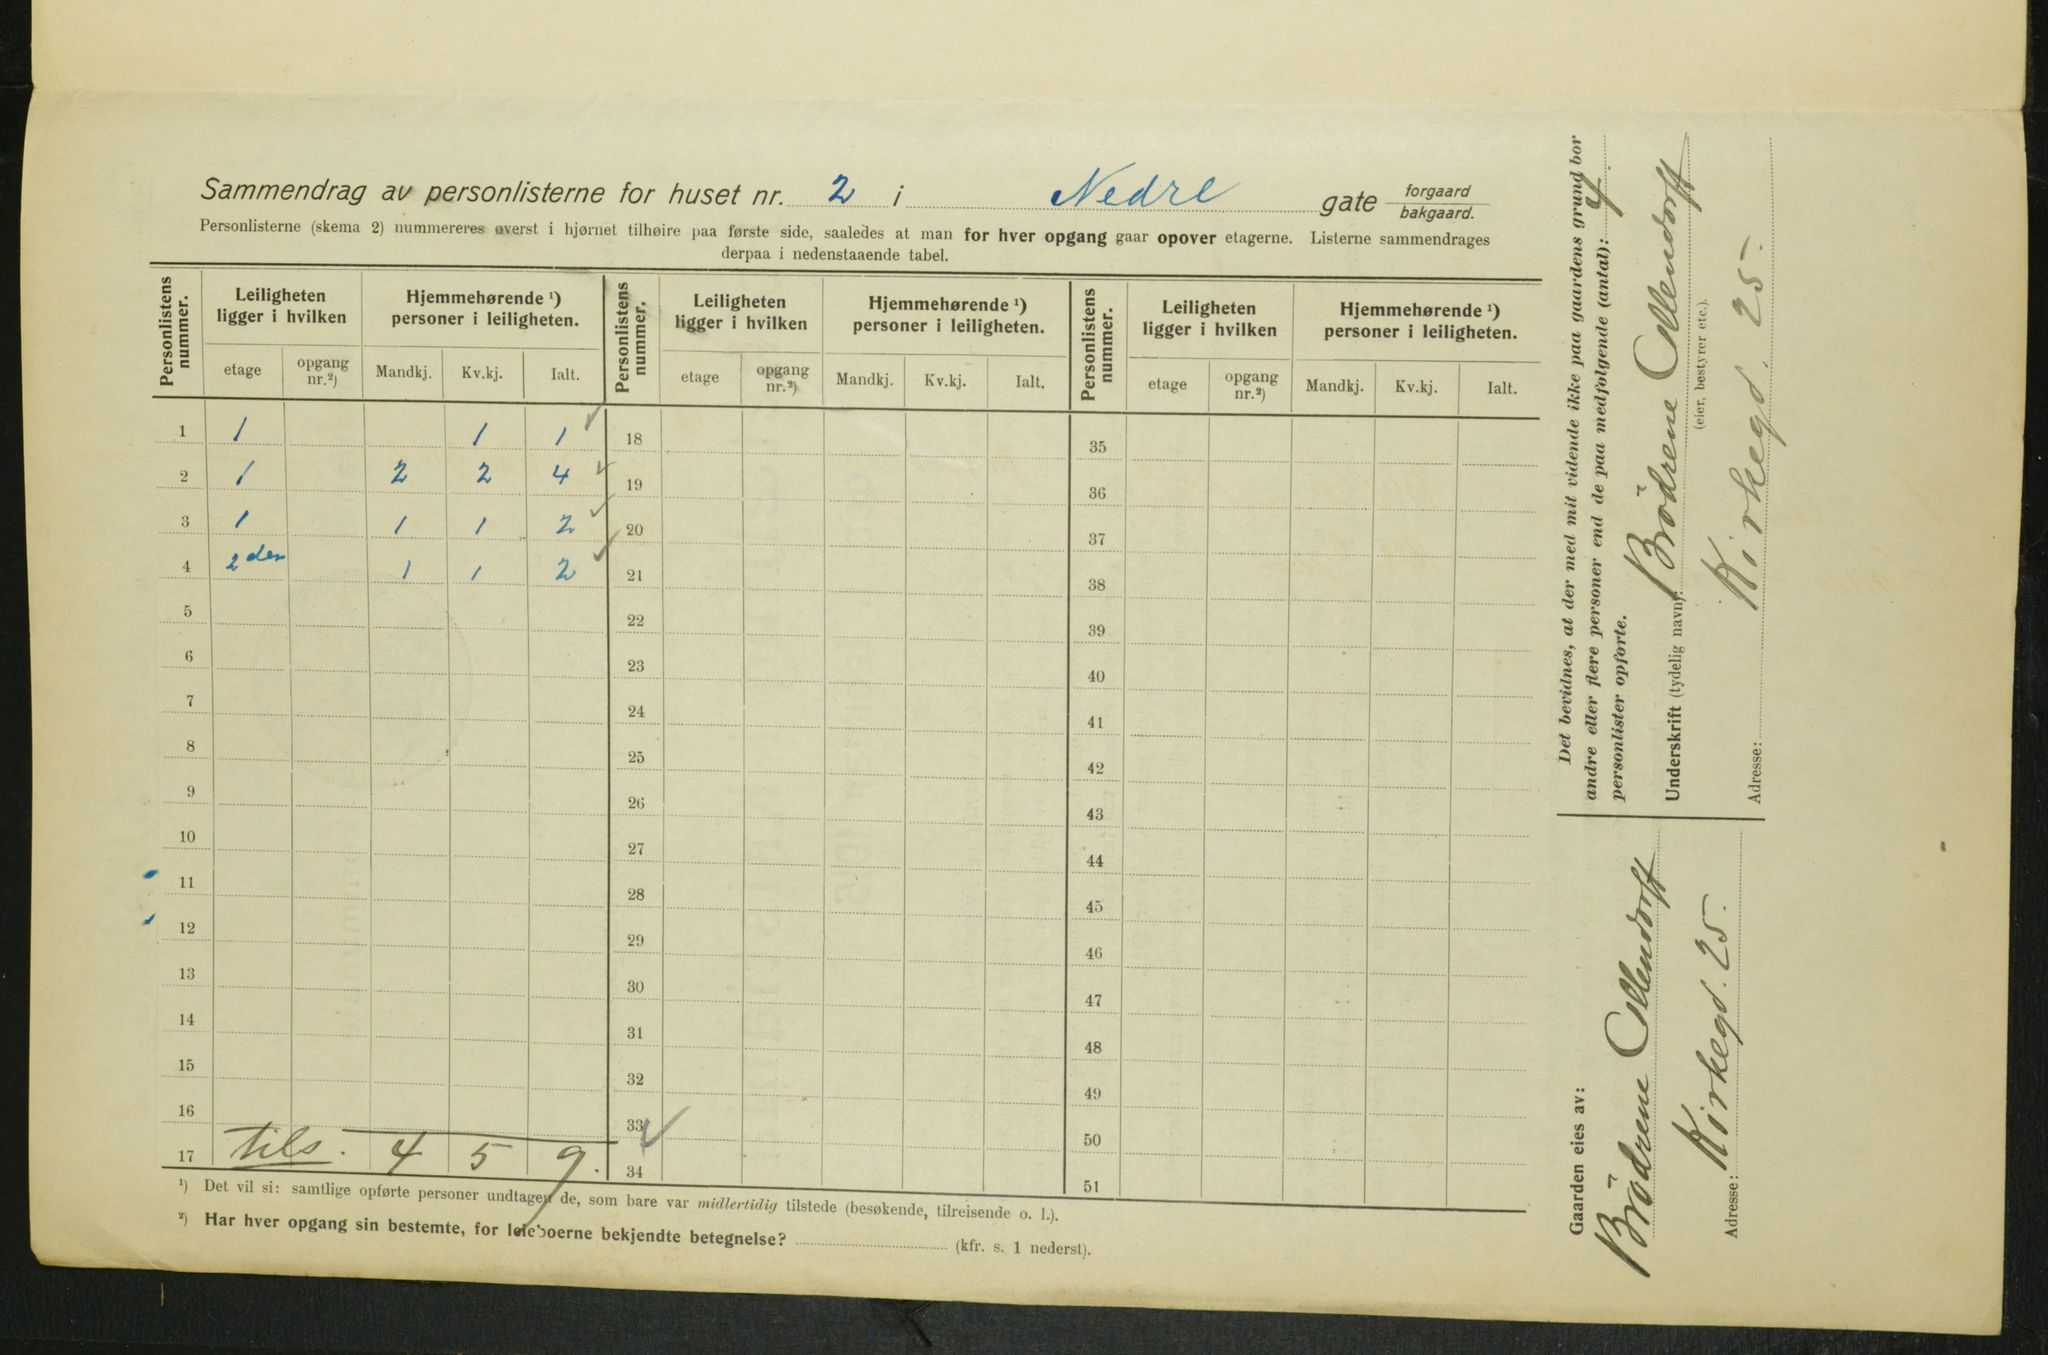 Sammendrag av personlisterne for huset nr. 2 i Nedre gate forgaard / bakgaard.
Personlisterne (skema 2) nummereres øverst i hjørnet tilhøire paa første side, saaledes at man for hver opgang gaar opover etagerne. Listerne sammendrages
derpaa i nedenstaaende tabel.
Personlistens nummer. Leiligheten ligger i hvilken Hjemmehørende ¹) personer i leiligheten. Personlistens nummer. Leiligheten ligger i hvilken Hjemmehørende ¹) personer i leiligheten. Personlistens nummer. Leiligheten ligger i hvilken Hjemmehørende ¹) personer i leiligheten.
etage opgang nr.²) Mandkj. Kv.kj. Ialt. etage opgang nr.²) Mandkj. Kv.kj. Ialt. etage opgang nr.²) Mandkj. Kv.kj. Ialt.
1 1 1 1 ✓ 18 35
2 1 2 2 4 ✓ 19 36
3 1 1 1 2 ✓ 20 37
4 2den 1 1 2 ✓ 21 38
5 22 39
6 23 40
7 24 41
8 25 42
9 26 43
10 27 44
11 28 45
12 29 46
13 30 47
14 31 48
15 32 49
16 33 ✓ 50
17 tils. 4 5 9. 34 51
¹) Det vil si: samtlige opførte personer undtagen de, som bare var midlertidig tilstede (besøkende, tilreisende o. l.).
²) Har hver opgang sin bestemte, for leieboerne bekjendte betegnelse? (kfr. s. 1 nederst).
Det bevidnes, at der med mit vidende ikke paa gaardens grund bor
andre eller flere personer end de paa medfølgende (antal): 4.
personlister opførte.
Underskrift (tydelig navn): Brödrene Ollendorff
(eier, bestyrer etc.).
Adresse: Kirkegd. 25.
Gaarden eies av:
Brödrene Ollendorff
Adresse: Kirkegd. 25.